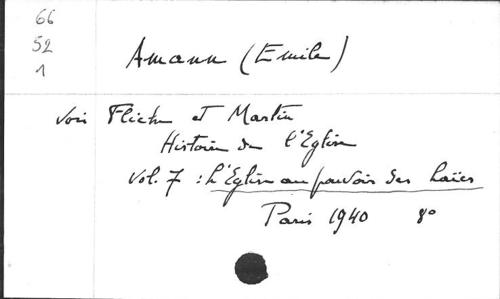 66
52
1
Amann (Emile)
voir Fliche et Martin
Histoire de l'Eglise
Vol. 7 : L'Eglise au pouvoir des laïcs
Paris 1940 8º